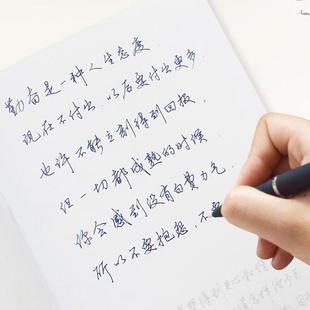 勤奋是一种人生态度.
现在不付出.以后要付出更多.
也许不能立刻得到回报,
但一切都成熟的时候.
你会感到没有白费力气.
所以不要抱怨.不要